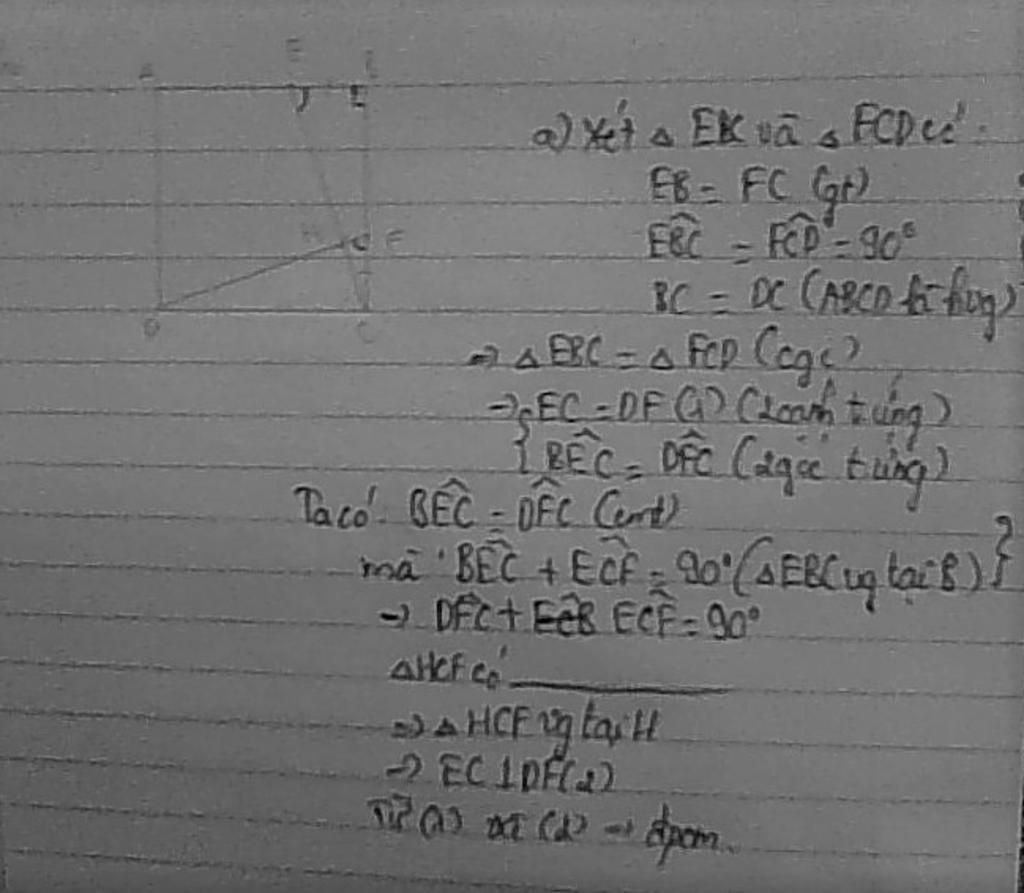 a) Xét △ EBC và △ FCD có:
EB = FC (gt)
EBC^ = FCD^ = 90°
BC = DC (ABCD là hvg)
⇒ △ EBC = △ FCD (cgc)
→ { EC = DF (1) (2 cạnh t ứng)
BEC^ = DFC^ (2 góc t ứng)
Ta có: BEC^ = DFC^ (cmt)
mà BEC^ + ECF^ = 90° (△EBC vg tại B) }
→ DFC^ + ECF^ = 90°
△HCF có
⇒ △ HCF vg tại H
→ EC ⊥ DF (2)
Từ (1) và (2) → đpcm.
A
E
B
H
F
D
C